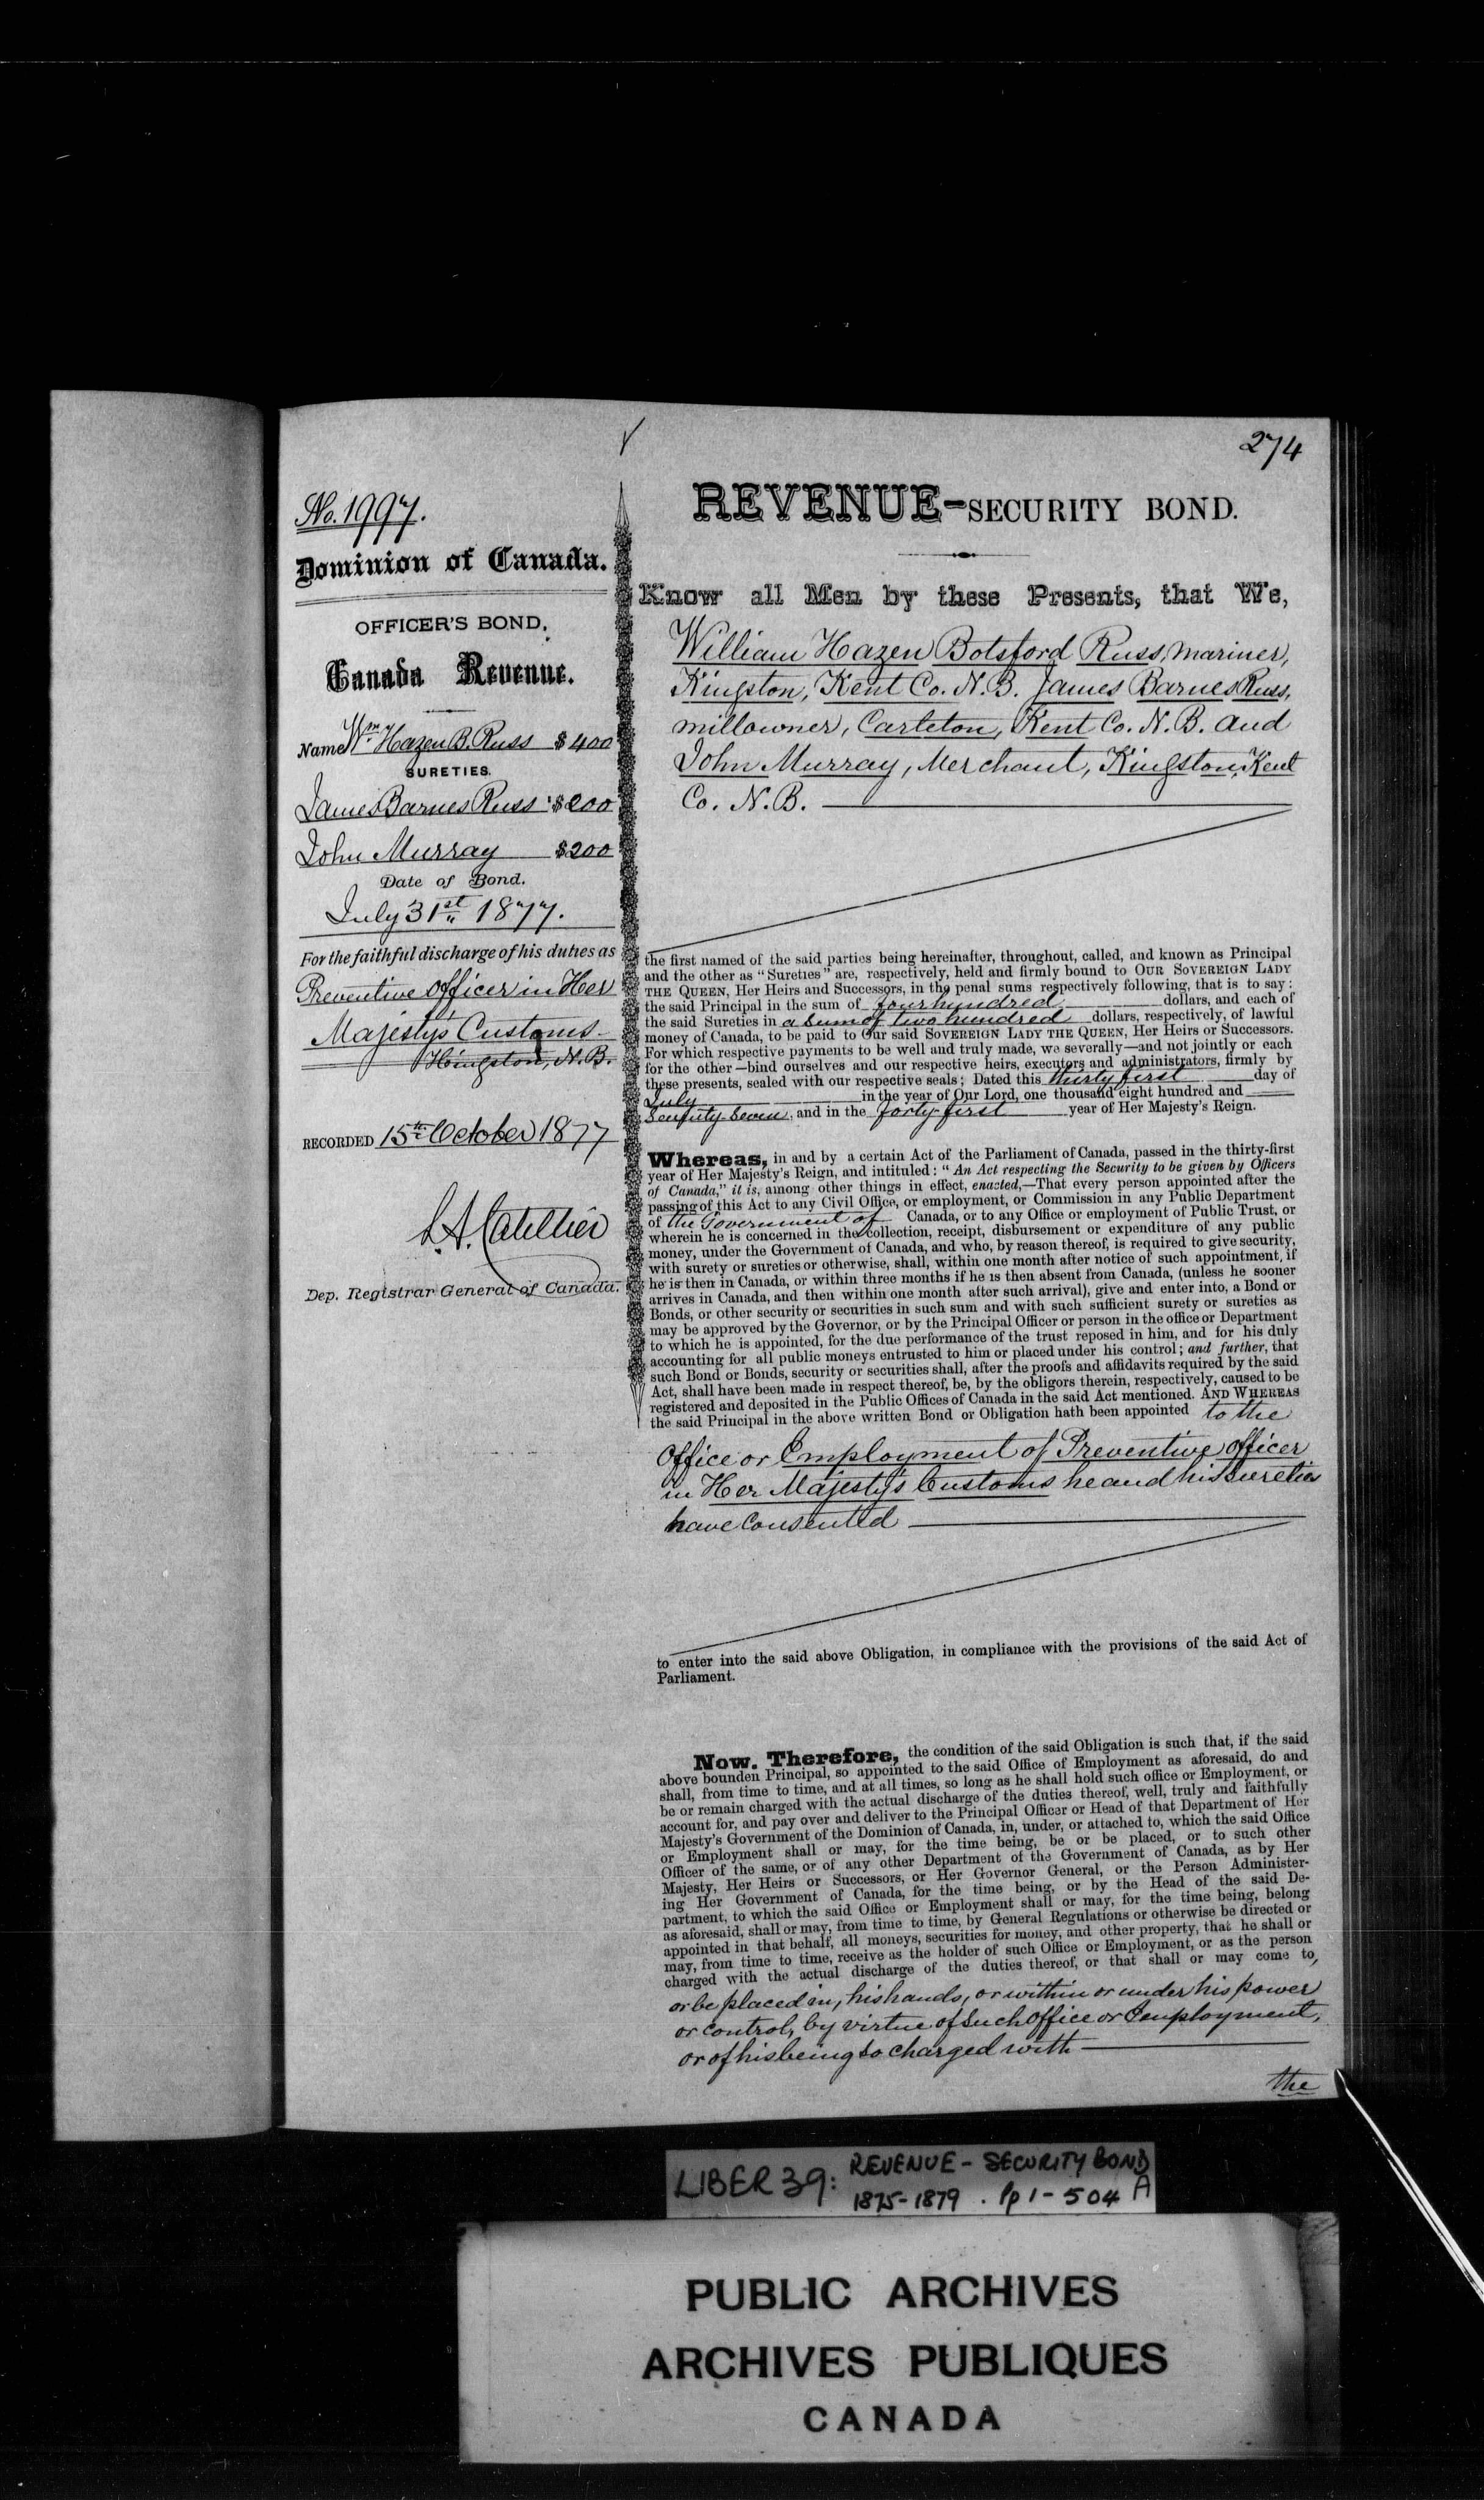 274
No. 1997.
Dominion of Canada.
OFFICER'S BOND,
Canada Revenue.
Name Wm. Hazen B. Russ $400
SURETIES.
James Barnes Russ $200
John Murray $200
Date of Bond.
July 31st 1877.
For the faithful discharge of his duties as
Preventive Officer in Her
Majesty's Customs
Kingston, N.B.
RECORDED 15th October 1877
L. A. Catellier
Dep. Registrar General of Canada.
REVENUE-SECURITY BOND.
Know all Men by these Presents, that We,
William Hazen Botsford Russ, Mariner,
Kingston, Kent Co. N.B. James Barnes Russ,
millowner, Carleton, Kent Co. N.B. and
John Murray, Merchant, Kingston, Kent
Co. N.B.
the first named of the said parties being hereinafter, throughout, called, and known as Principal
and the other as "Sureties" are, respectively, held and firmly bound to OUR SOVEREIGN LADY
THE QUEEN, Her Heirs and Successors, in the penal sums respectively following, that is to say:
the said Principal in the sum of four hundred dollars, and each of
the said Sureties in a sum of two hundred dollars, respectively, of lawful
money of Canada, to be paid to Our said SOVEREIGN LADY THE QUEEN, Her Heirs or Successors.
For which respective payments to be well and truly made, we severally—and not jointly or each
for the other—bind ourselves and our respective heirs, executors and administrators, firmly by
these presents, sealed with our respective seals; Dated this thirty first day of
July in the year of Our Lord, one thousand eight hundred and
Seventy Seven, and in the forty-first year of Her Majesty's Reign.
Whereas, in and by a certain Act of the Parliament of Canada, passed in the thirty-first
year of Her Majesty's Reign, and intituled: "An Act respecting the Security to be given by Officers
of Canada," it is, among other things in effect, enacted,—That every person appointed after the
passing of this Act to any Civil Office, or employment, or Commission in any Public Department
of the Government of Canada, or to any Office or employment of Public Trust, or
wherein he is concerned in the collection, receipt, disbursement or expenditure of any public
money, under the Government of Canada, and who, by reason thereof, is required to give security,
with surety or sureties or otherwise, shall, within one month after notice of such appointment, if
he is then in Canada, or within three months if he is then absent from Canada, (unless he sooner
arrives in Canada, and then within one month after such arrival), give and enter into, a Bond or
Bonds, or other security or securities in such sum and with such sufficient surety or sureties as
may be approved by the Governor, or by the Principal Officer or person in the office or Department
to which he is appointed, for the due performance of the trust reposed in him, and for his duly
accounting for all public moneys entrusted to him or placed under his control; and further, that
such Bond or Bonds, security or securities shall, after the proofs and affidavits required by the said
Act, shall have been made in respect thereof, be, by the obligors therein, respectively, caused to be
registered and deposited in the Public Offices of Canada in the said Act mentioned. AND WHEREAS
the said Principal in the above written Bond or Obligation hath been appointed to the
Office or Employment of Preventive Officer
in Her Majesty's Customs he and his Sureties
have Consented
to enter into the said above Obligation, in compliance with the provisions of the said Act of
Parliament.
Now, Therefore, the condition of the said Obligation is such that, if the said
above bounden Principal, so appointed to the said Office of Employment as aforesaid, do and
shall, from time to time, and at all times, so long as he shall hold such office or Employment, or
be or remain charged with the actual discharge of the duties thereof, well, truly and faithfully
account for, and pay over and deliver to the Principal Officer or Head of that Department of Her
Majesty's Government of the Dominion of Canada, in, under, or attached to, which the said Office
or Employment shall or may, for the time being, be or be placed, or to such other
Officer of the same, or of any other Department of the Government of Canada, as by Her
Majesty, Her Heirs or Successors, or Her Governor General, or the Person Administer-
ing Her Government of Canada, for the time being, or by the Head of the said De-
partment, to which the said Office or Employment shall or may, for the time being, belong
as aforesaid, shall or may, from time to time, by General Regulations or otherwise be directed or
appointed in that behalf, all moneys, securities for money, and other property, that he shall or
may, from time to time, receive as the holder of such Office or Employment, or as the person
charged with the actual discharge of the duties thereof, or that shall or may come to,
or be placed in, his hands, or within or under his power
or control, by virtue of such Office or Employment,
or of his being so charged with
the
LIBER 39: REVENUE - SECURITY BOND
1875-1879. Pp 1-504 A
PUBLIC ARCHIVES
ARCHIVES PUBLIQUES
CANADA